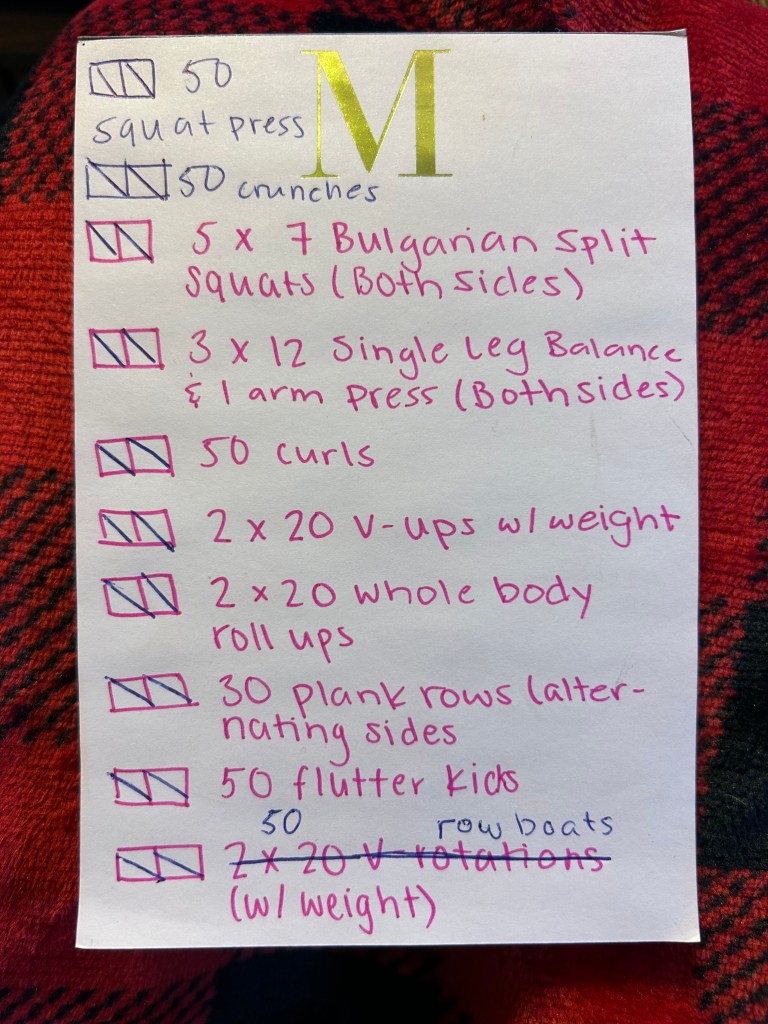 M
50
squat press
50 crunches
5 x 7 Bulgarian Split
Squats (Both sides)
3 x 12 Single Leg Balance
& 1 arm press (Both sides)
50 curls
2 x 20 V-ups w/ weight
2 x 20 whole body
roll ups
30 plank rows (alter-
nating sides
50 flutter kicks
50 row boats
2 x 20 V-rotations
(w/ weight)